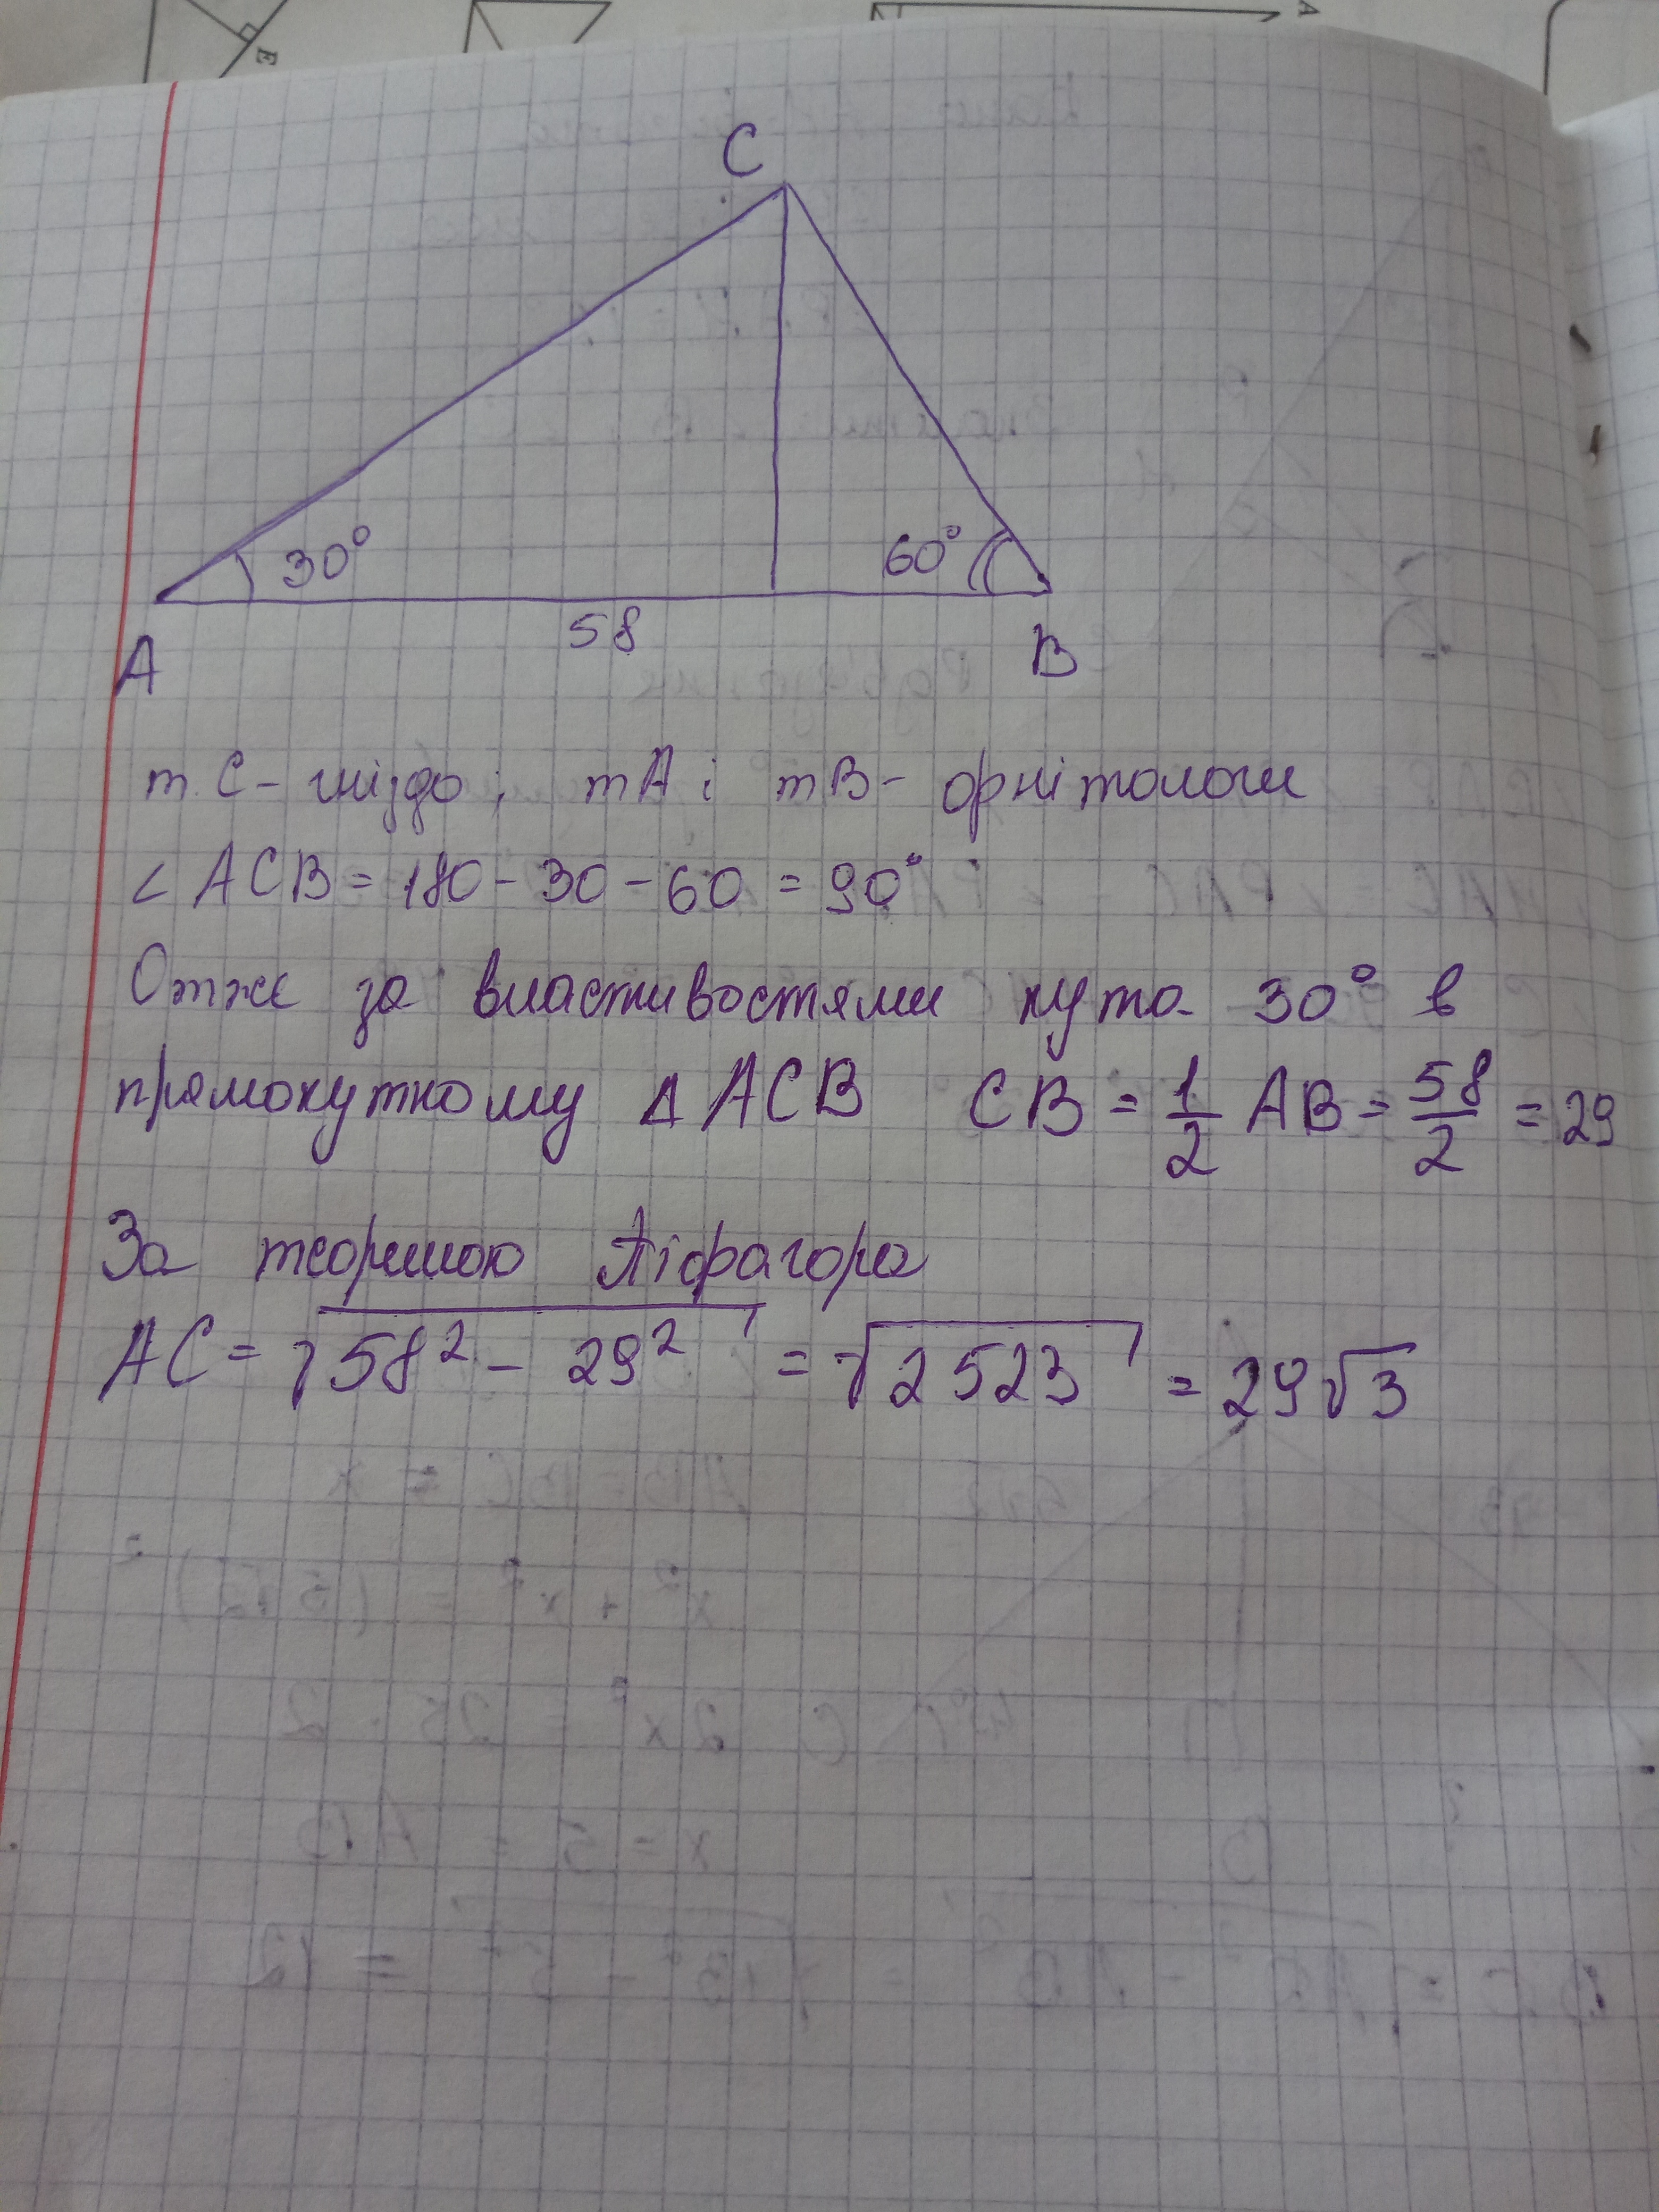 C
30°
60°
58
A
B
т. С - гніздо; тА і тВ - орнітологи
∠ ACB = 180 - 30 - 60 = 90°
Отже за властивостями кута 30° в
прямокутному Δ ACB CB = 1/2 AB = 58/2 = 29
За теоремою Піфагора
AC = √58² - 29² = √2523 = 29√3